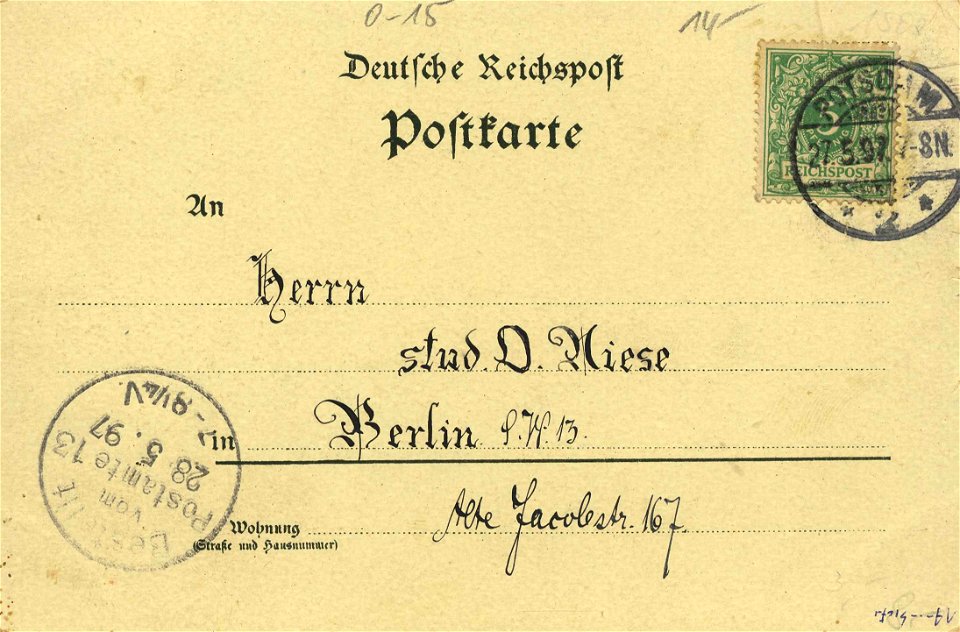 0-15 14-
Deutsche Reichspost
Postkarte
POTSDAM
27.5.97. 7-8N.
5
REICHSPOST
* 2 *
An
Herrn
stud. O. Niese
in Berlin S.W. 13.
Wohnung Alte Jacobstr. 167
(Straße und Hausnummer)
Bestellt
vom
Postamte 13
28. 5. 97
7-8¼V.